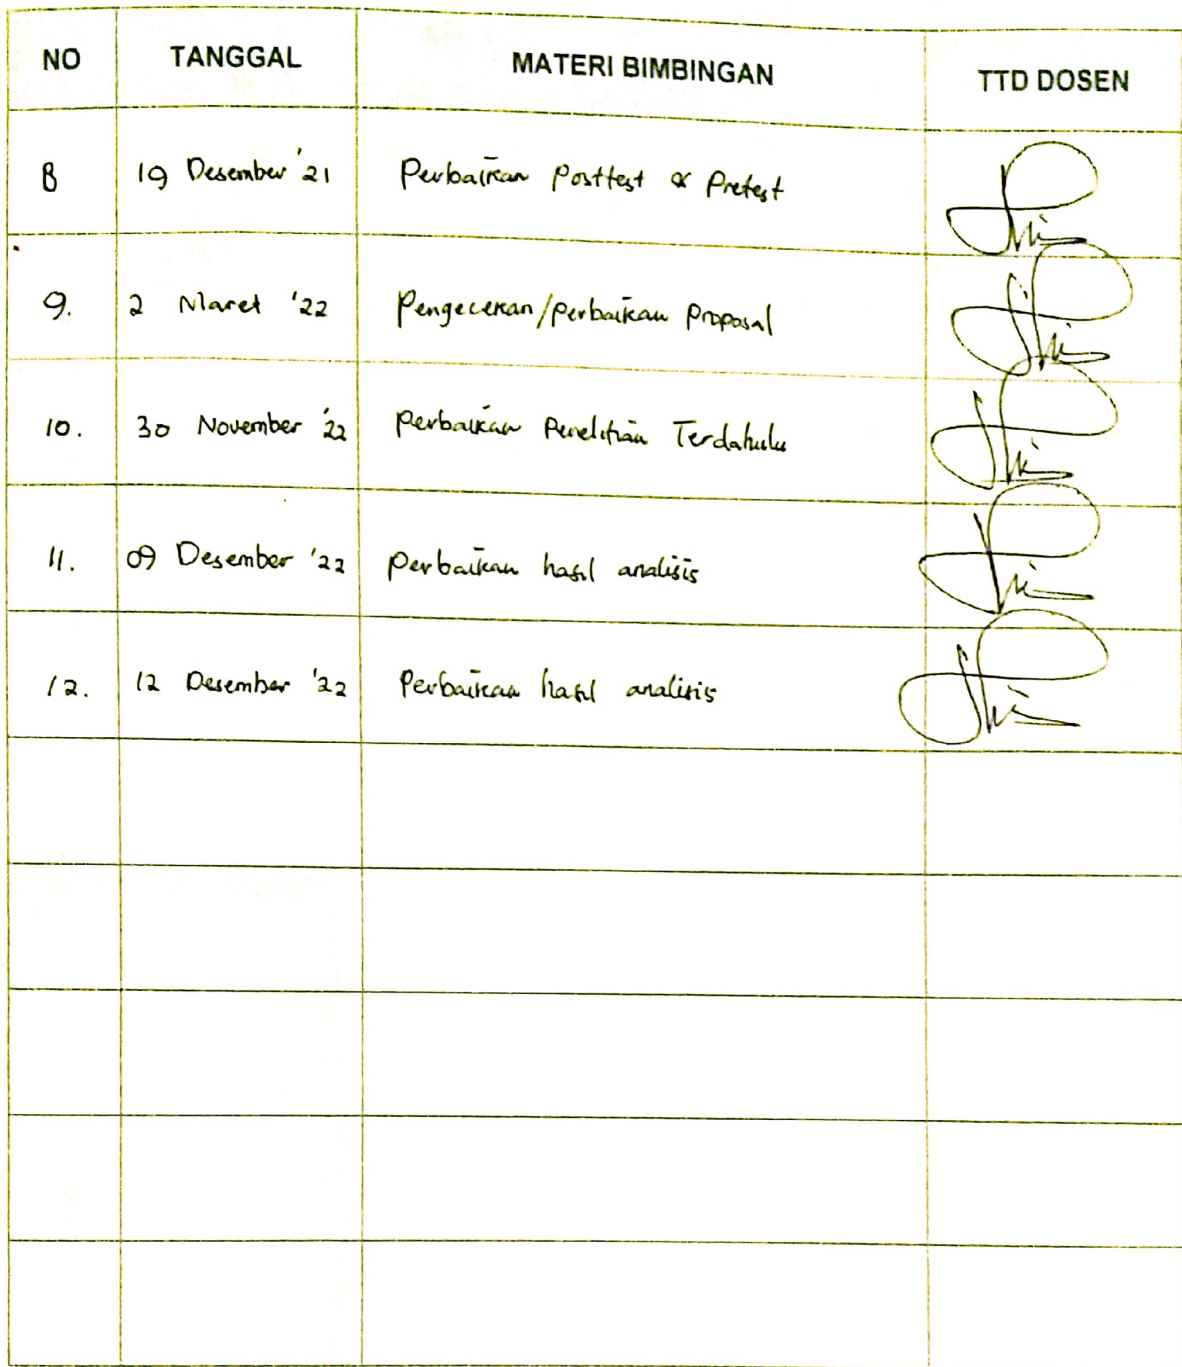 NO TANGGAL MATERI BIMBINGAN TTD DOSEN
8 19 Desember '21 Perbaikan Posttest & Pretest
9. 2 Maret '22 Pengecekan/perbaikan proposal
10. 30 November '22 Perbaikan Penelitian Terdahulu
11. 09 Desember '22 perbaikan hasil analisis
12. 12 Desember '22 Perbaikan hasil analisis